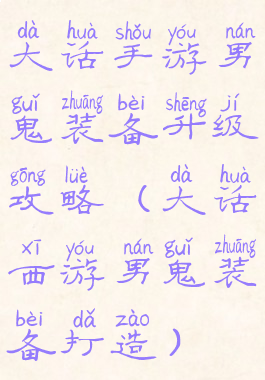 dà huà shǒu yóu nán
大话手游男
guǐ zhuāng bèi shēng jí
鬼装备升级
gōng lüè dà huà
攻略（大话
xī yóu nán guǐ zhuāng
西游男鬼装
bèi dǎ zào
备打造）